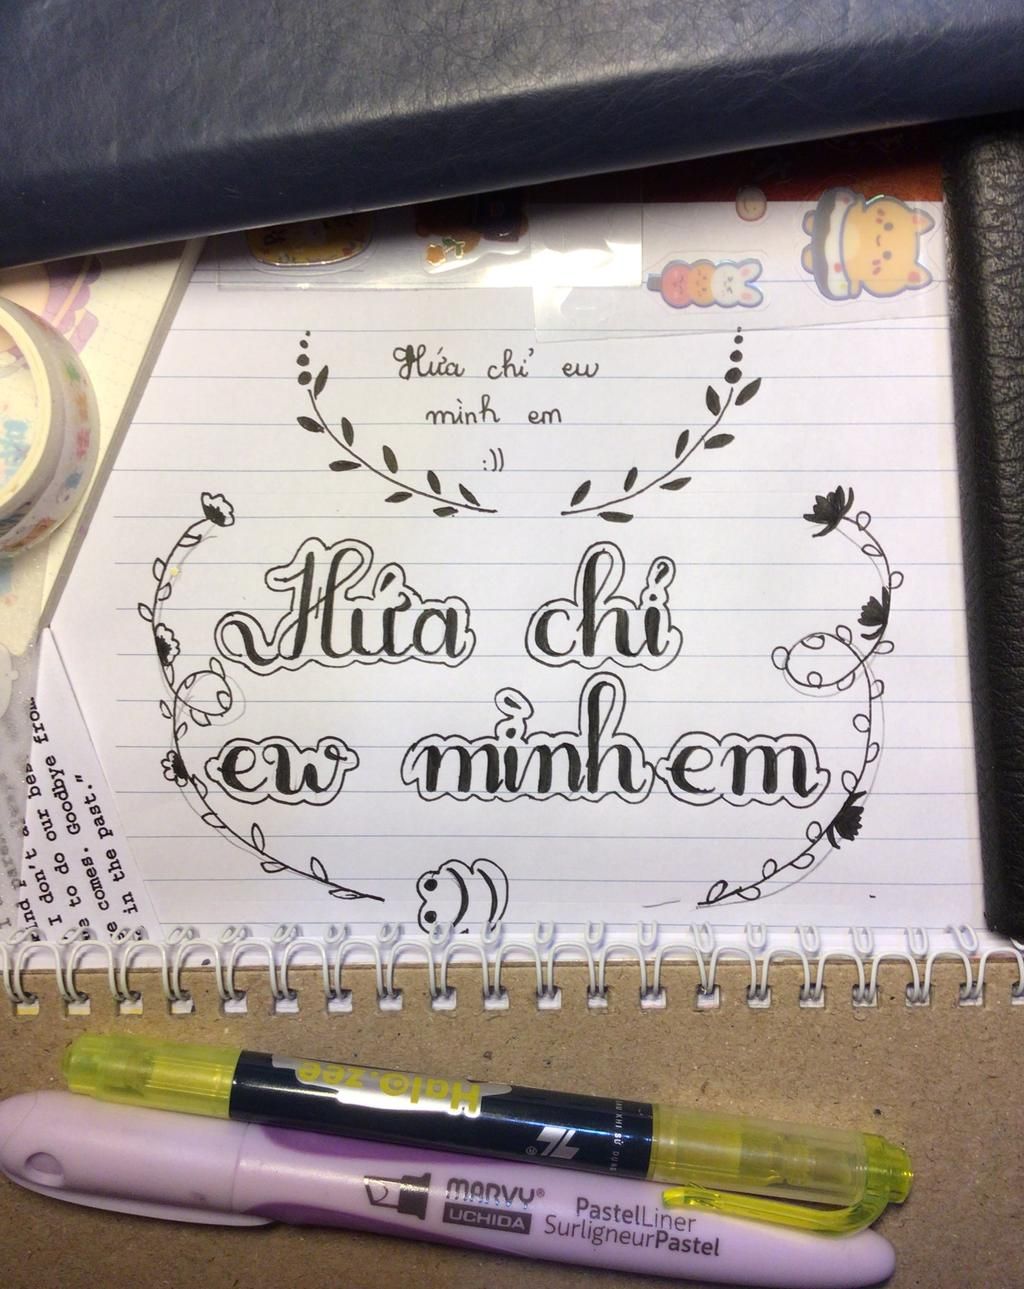 Hứa chỉ ew
mình em
:))
Hứa chỉ
ew mỉnh em
:))
find
I don't
our be
from
e to do Goodbye
e comes.
in the past."
Halo.zee
TL®
MARVY®
UCHIDA
PastelLiner
SurligneurPastel